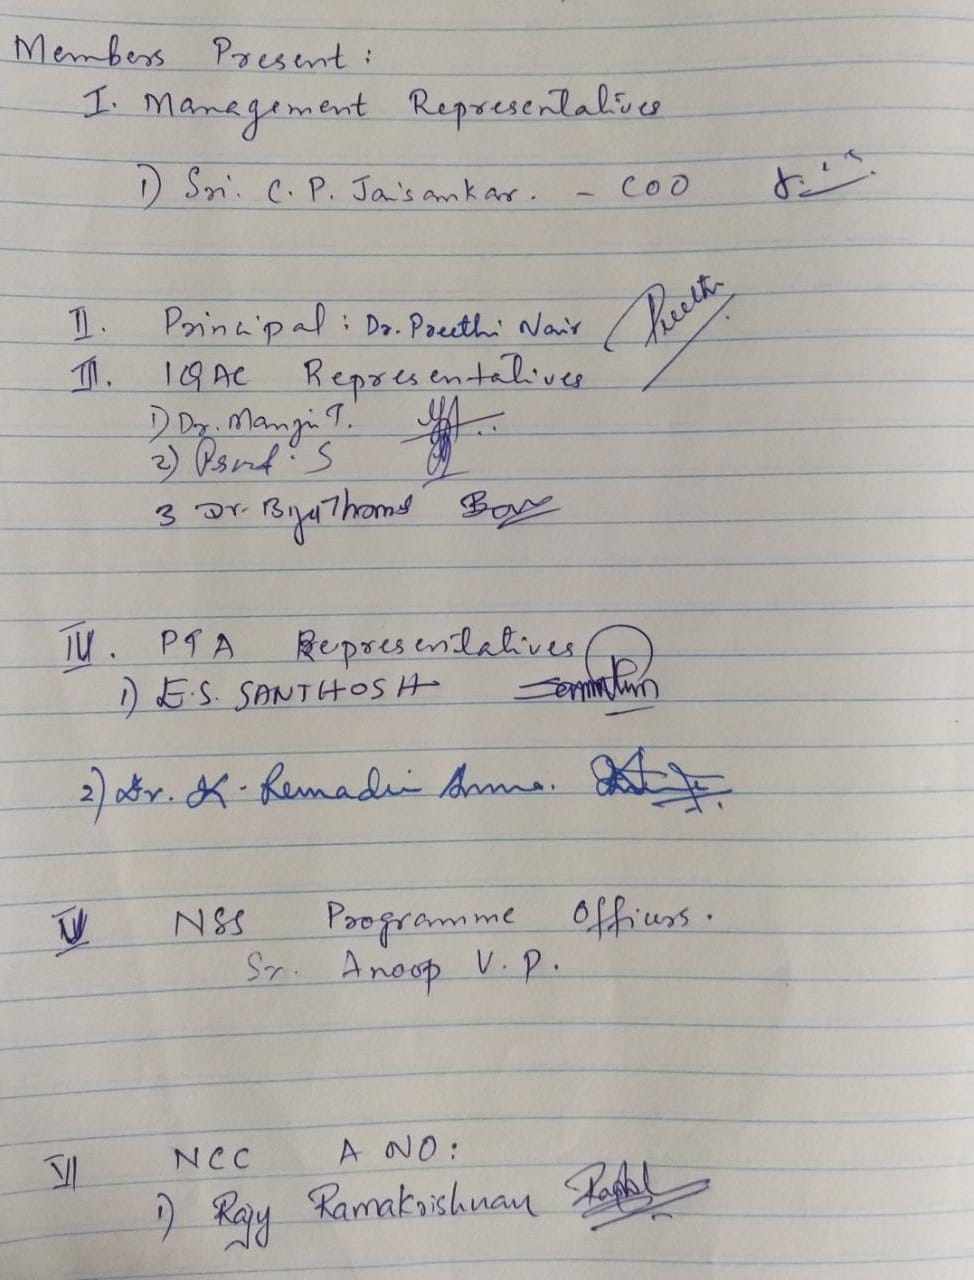 Members Present :
I. Management Representatives
1) Sri. C. P. Jaisankar. - COO
II. Principal : Dr. Preethi Nair Preethi
III. IQAC Representatives
1) Dr. Manju T.
2) S
3 Dr. Biju Thomas
IV. PTA Representatives
1) E.S. SANTHOSH
2) Dr. K. Remadevi Amma.
V NSS Programme Officers.
Sr. Anoop V. P.
VI NCC A NO :
1) Rajy Ramakrishnan